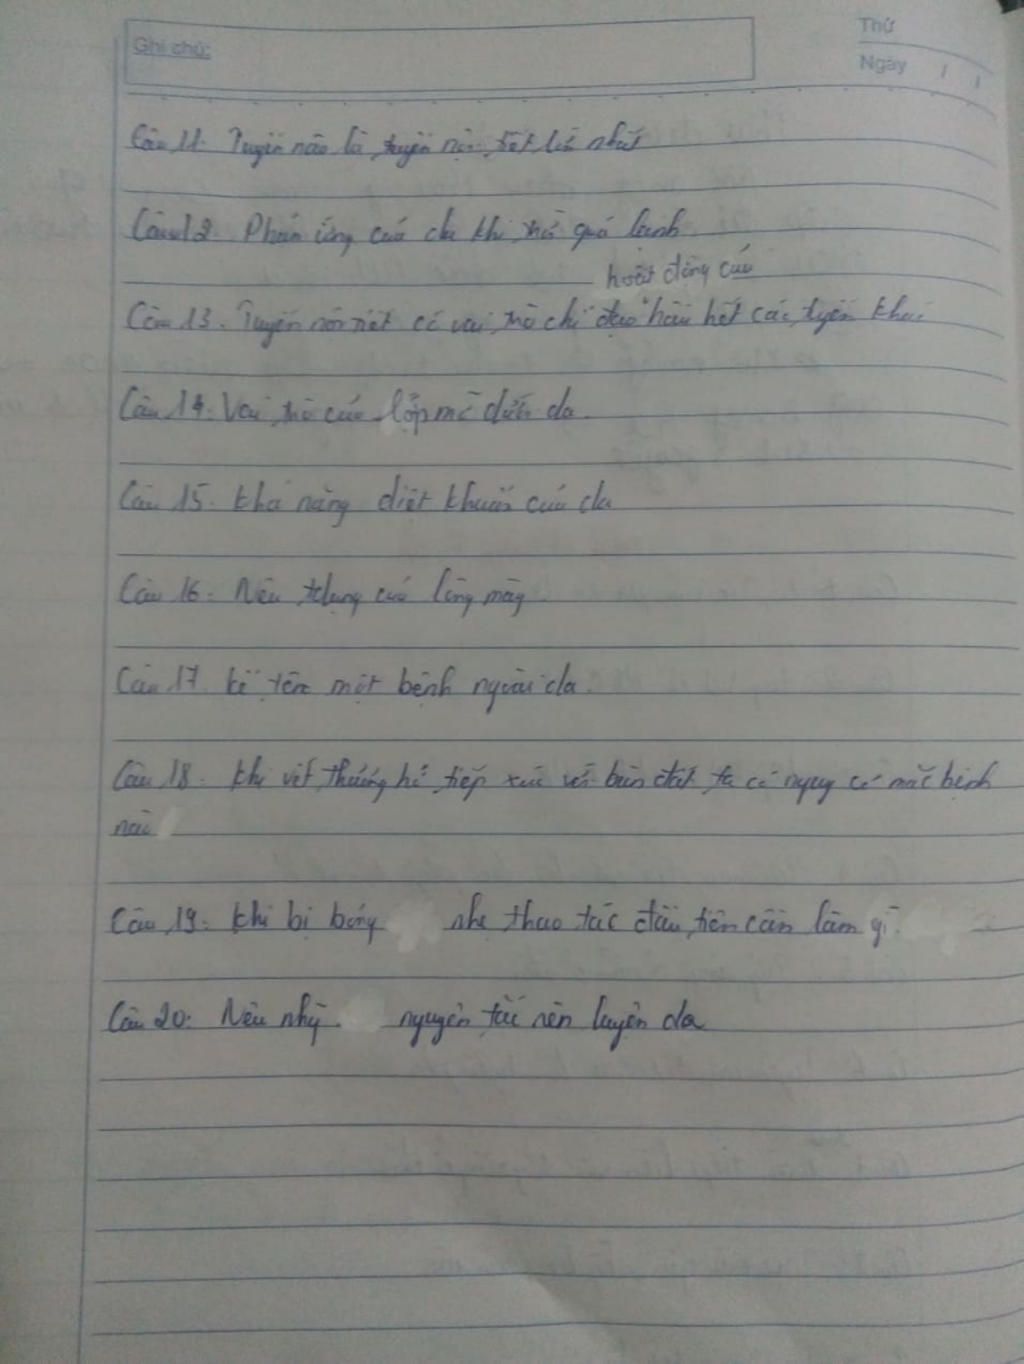 Ghi chú:
Thứ
Ngày / /
Câu 11. Tuyến nào là tuyến nội tiết lớn nhất
Câu 12. Phản ứng của da khi trời quá lạnh
hoạt động của
Câu 13. Tuyến nội tiết có vai trò chỉ đạo hầu hết các tuyến khác
Câu 14. Vai trò của lớp mỡ dưới da.
Câu 15. Khả năng diệt khuẩn của da
Câu 16. Nêu tdụng của lông mày
Câu 17. Kể tên một bệnh ngoài da.
Câu 18. Khi vết thương hở tiếp xúc với bùn đất ta có nguy cơ mắc bệnh
nào
Câu 19. Khi bị bỏng nhẹ thao tác đầu tiên cần làm gì.
Câu 20. Nêu nguyên tắc rèn luyện da